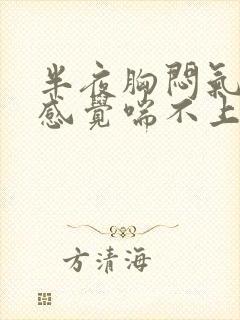 半夜胸悶氣
感覺喘不上
方清海